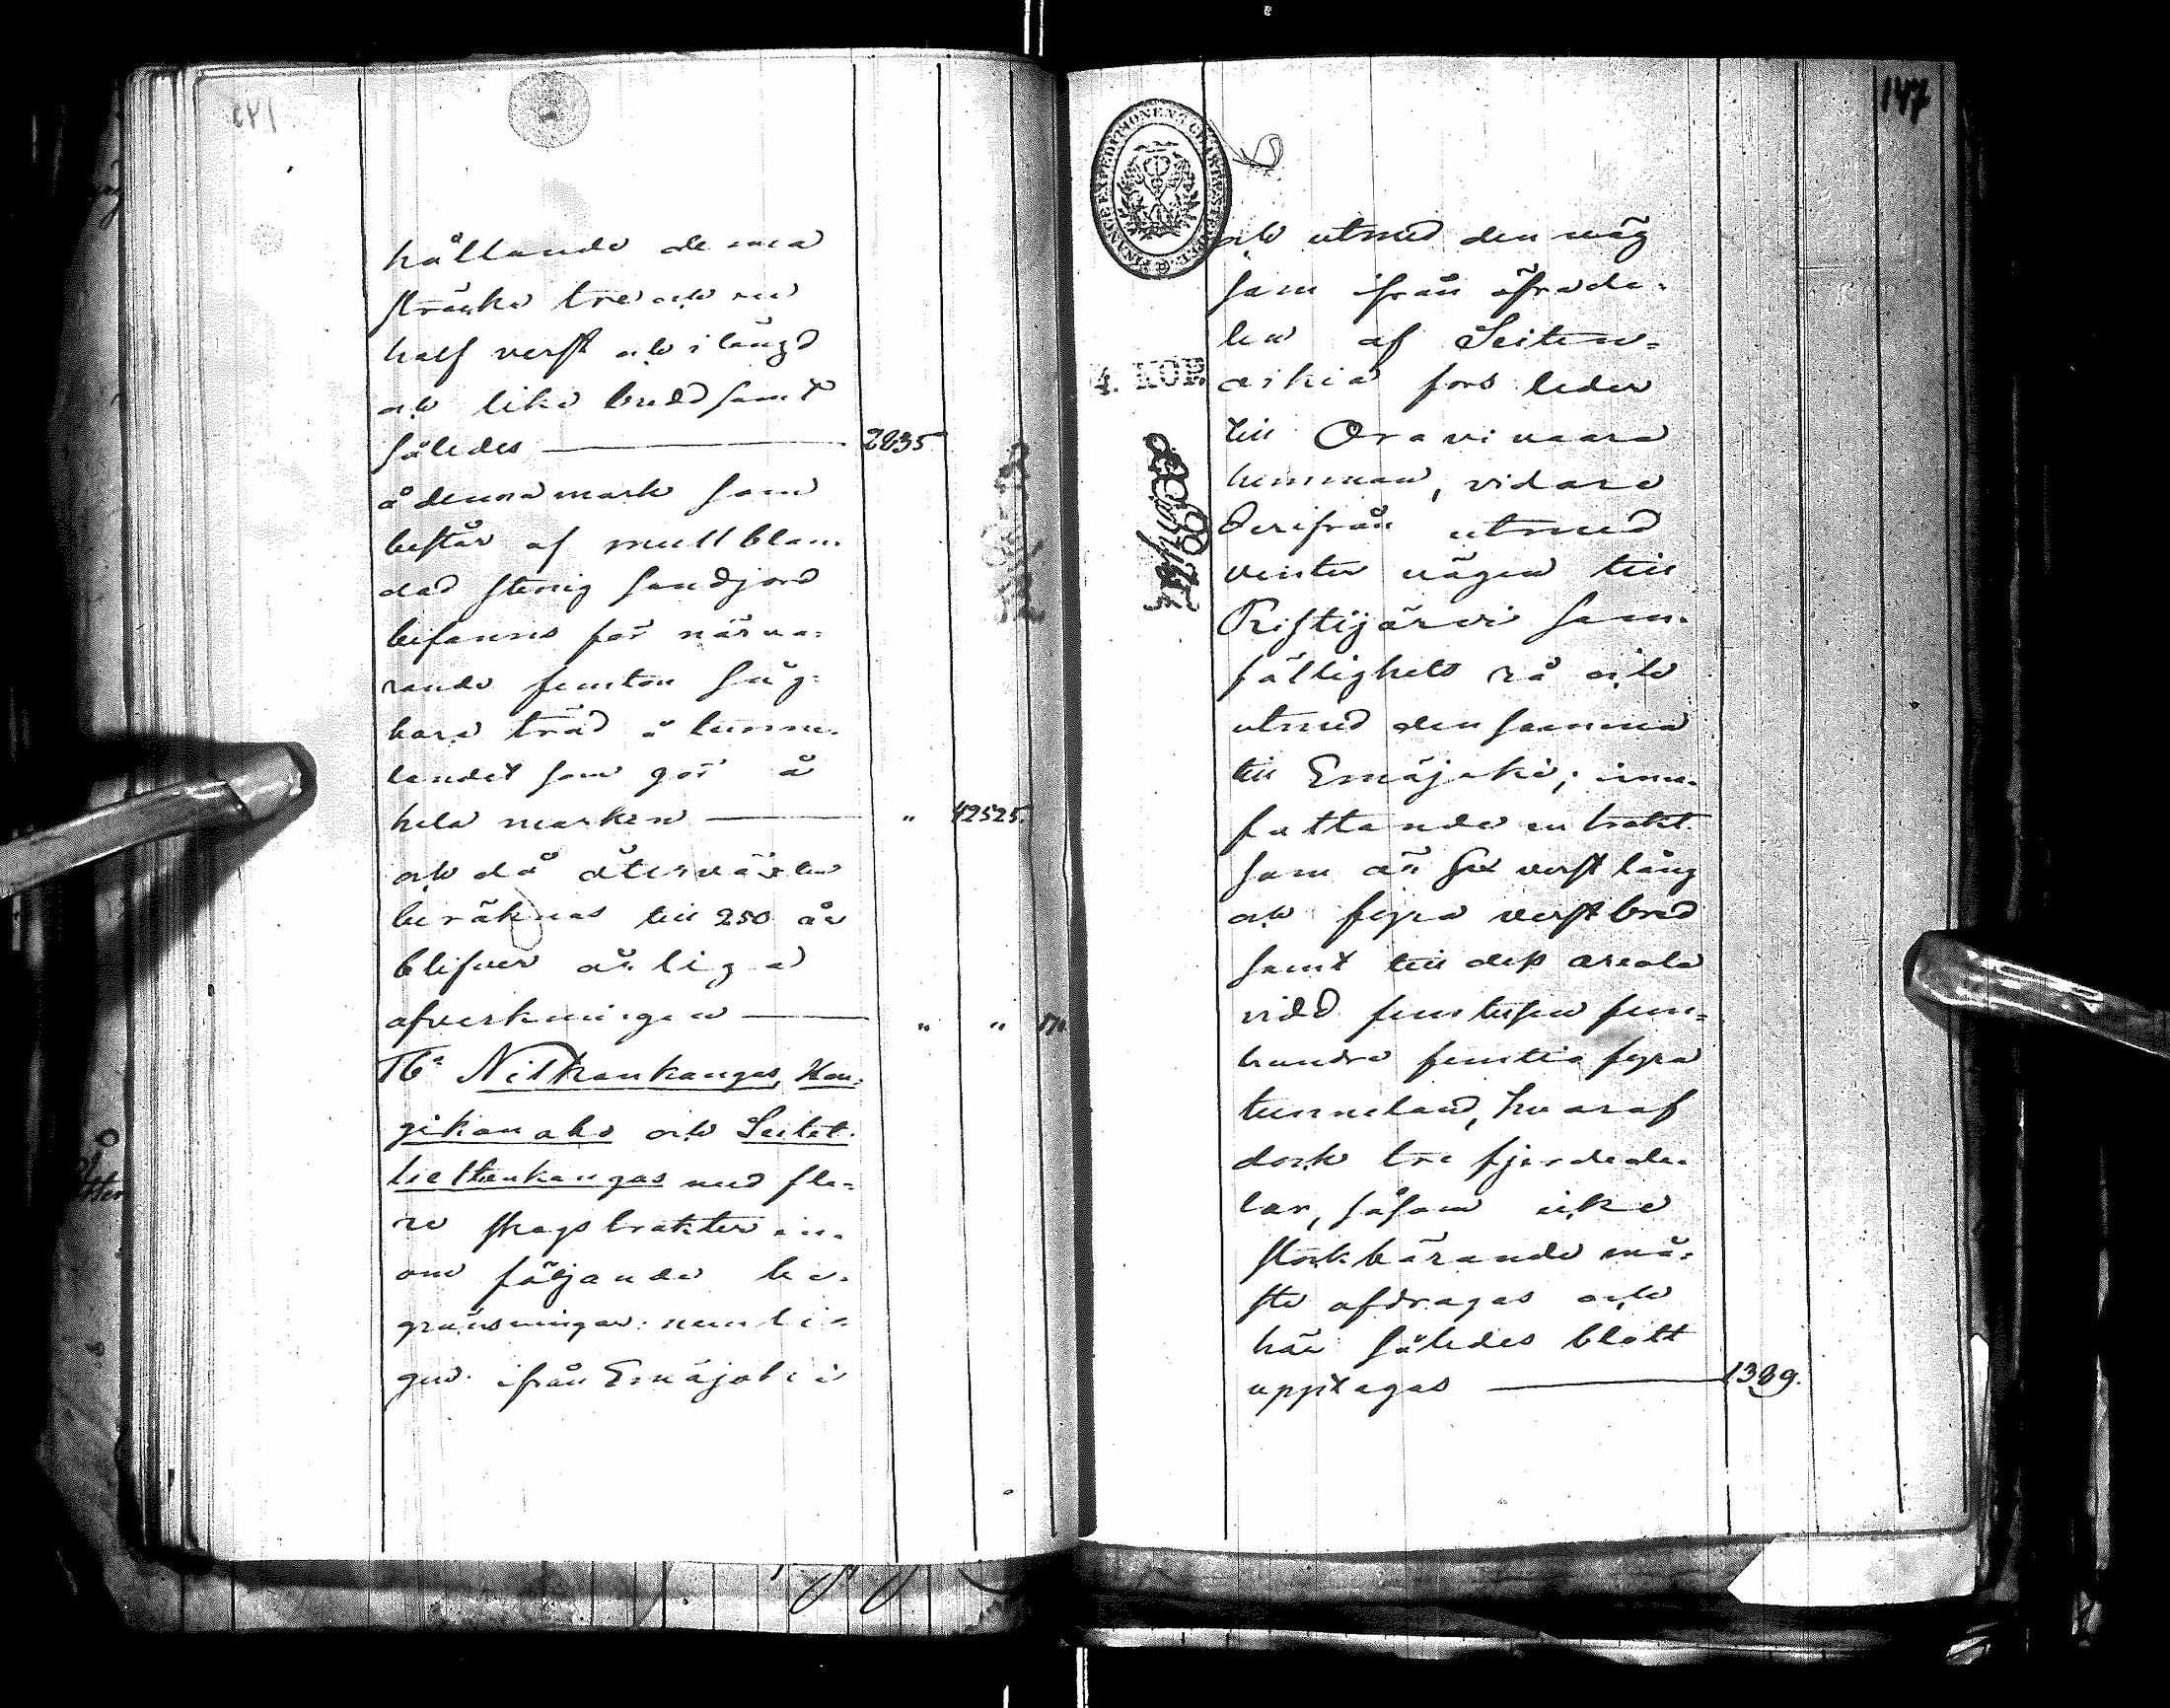 hållande denna
sträcka tre och en
half verst och i längd
och lika bredd samt
således — 2835
å denna mark som
består af mullblan-
dad stenig sandjord
befanns för närva-
rande femton såg-
bara träd å tunne-
landet som gör å
hela marken — " 42525.
och då återväxten
beräknas till 250 år
blifver årliga
afverkningen — " " 170
16:o Nilkankangas, Han-
gikanaho och Seitet-
liettenkangas med fle-
re skogstrakter in-
om följande be-
gränsningar nemli-
gen. ifrån Emäjoki
147
FINANCE EXPEDITIONENS CHARTÆ
4. KOP.
och utmed den väg
som ifrån öfra de-
len af Seiten-
oikia fors leder
till Oravivaara
hemman, vidare
derifrån utmed
vinter vägen till
Ristijärvi sam-
fällighets rå och
utmed den samma
till Emäjoki; inne-
fattande en trakt
som är sex verst lång
och fyra verst bred
samt till dess areala
vidd femtusen fem-
hundra femtio fyra
tunneland, hvaraf
dock tre fjerdede-
lar, såsom icke
stockbärande må-
ste afdragas och
här således blott
upptagas — 1389.